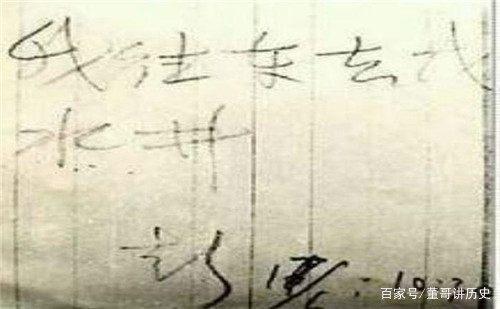 我往东去找
水井
彭 17/6:10:3
百家号/董哥讲历史